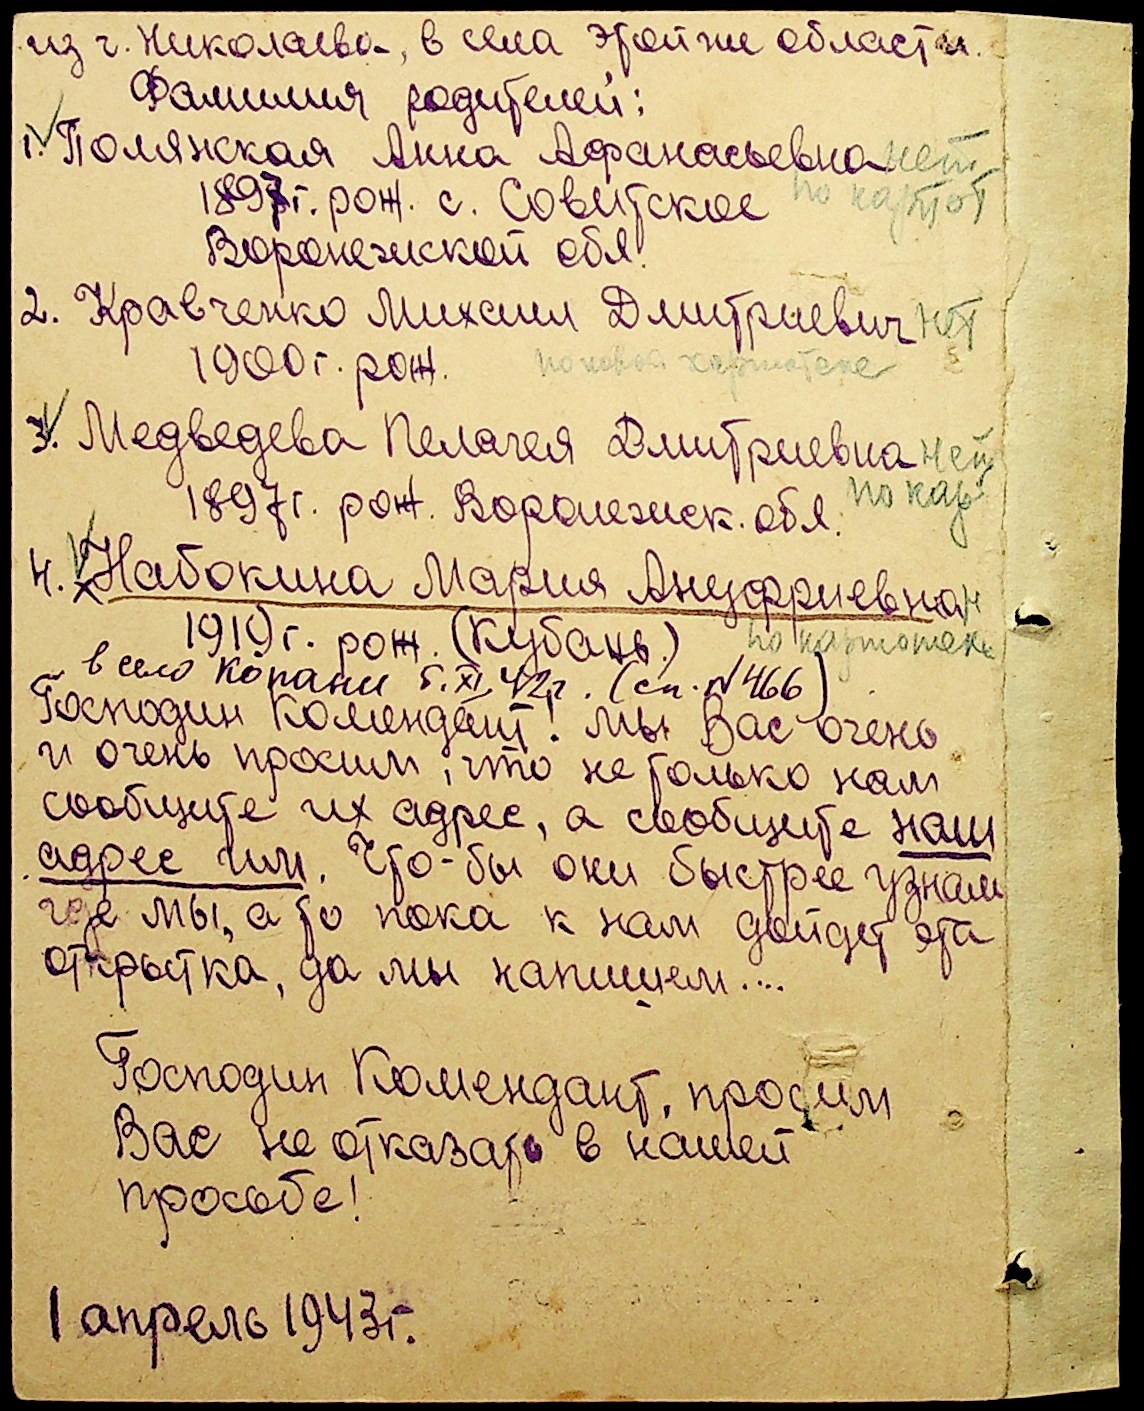 из г. Николаева, в села этой же области.
Фамилия родителей:
1. Полянская Анна Афанасьевна нет
1897г. рож. с. Советское по картот
Воронежской обл.
2. Кравченко Михаил Дмитриевич нет
1900г. рож. по новой картотеке
3. Медведева Пелагея Дмитриевна нет
1897г. рож. Воронежск. обл. по кар
4. Набокина Мария Ануфриевна н
1919г. рож. (Кубань.) по картотеке
в село Копани 5.XI.42г. (сп. №466)
Господин Комендант! Мы Вас очень
и очень просим, что не только нам
сообщите их адрес, а сообщите наш
адрес им. Что-бы они быстрее узнали
где мы, а то пока к нам дойдет эта
открытка, да мы напишем....
Господин Комендант, просим
Вас не отказать в нашей
прособе!
1 апрель 1943г.